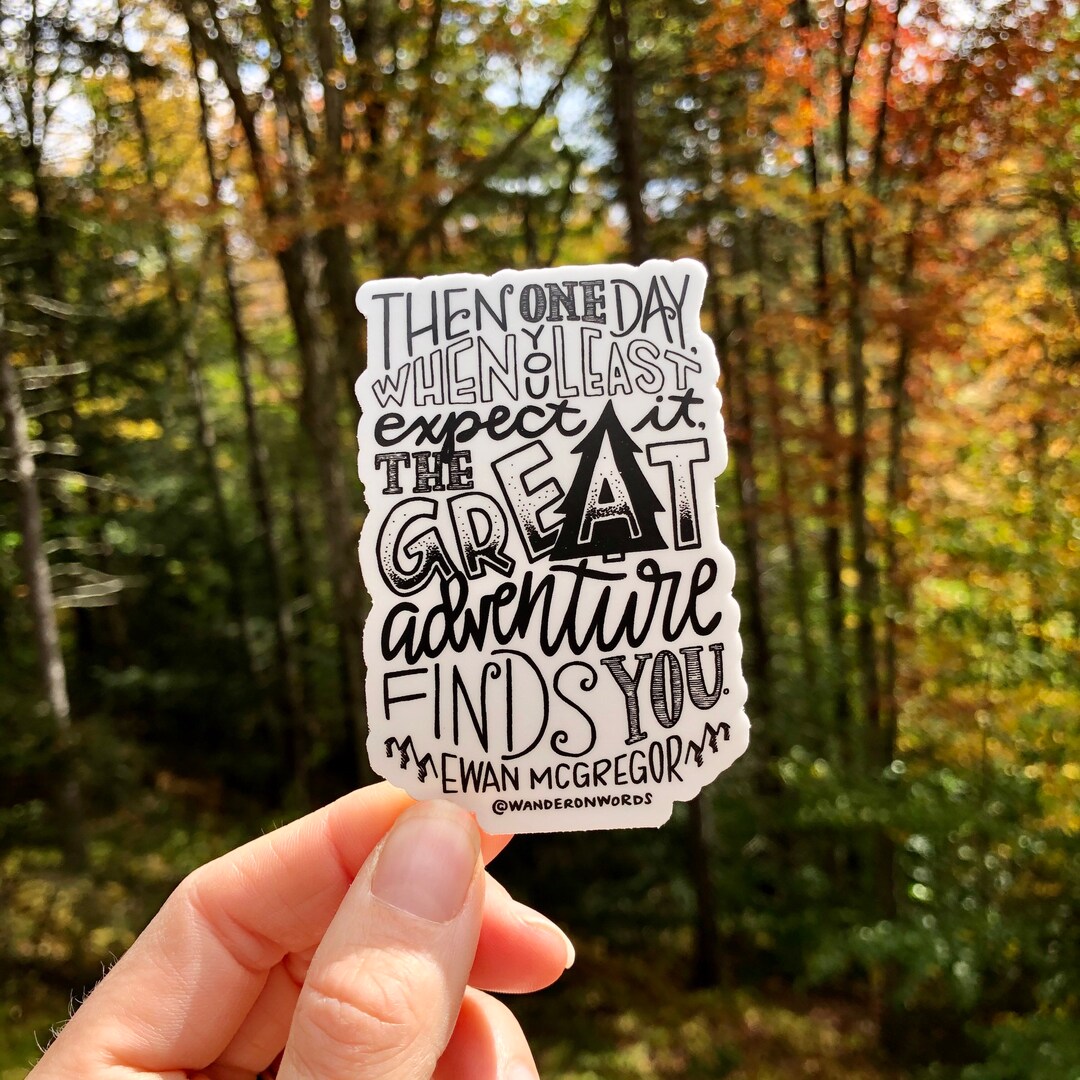 THEN ONE DAY,
WHEN YOU LEAST
expect it,
THE
GREAT
adventure
FINDS YOU.
EWAN MCGREGOR
@WANDERONWORDS